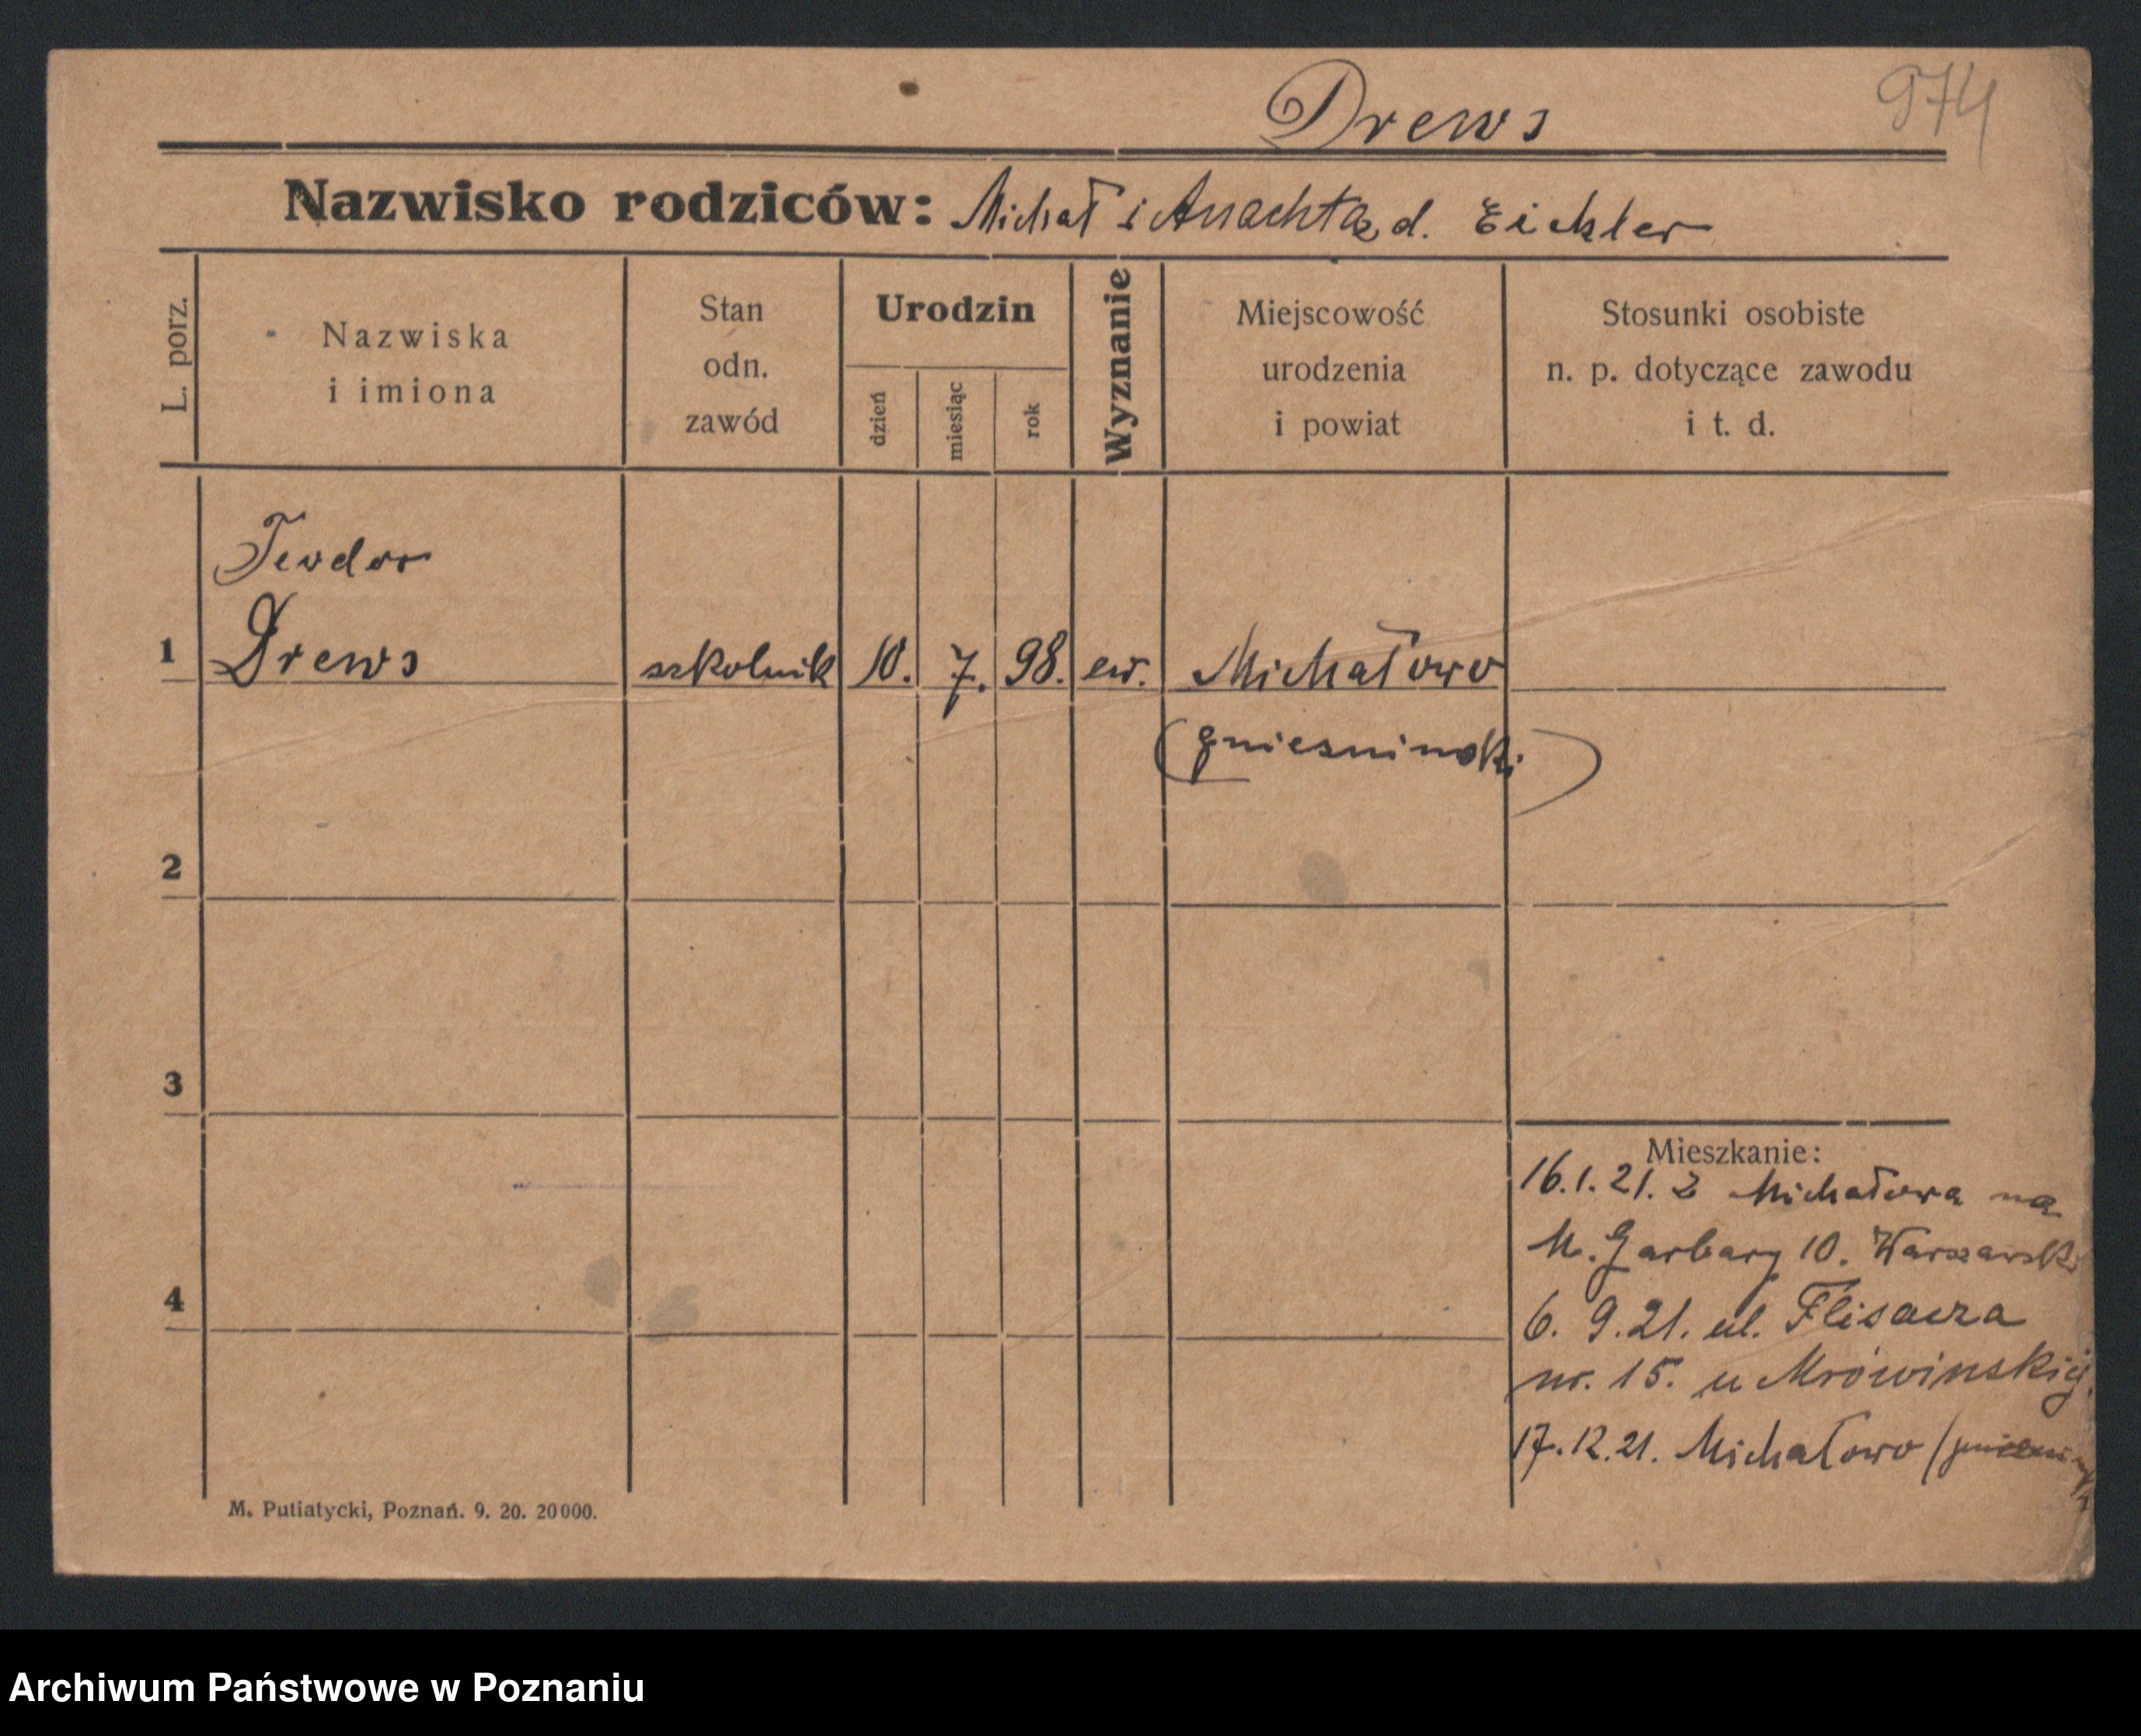 Drews
974
Nazwisko rodziców: Michał i z d. Eichler
L. porz.
Nazwiska
i imiona
Stan
odn.
zawód
Urodzin
dzień
miesiąc
rok
Wyznanie
Miejscowość
urodzenia
i powiat
Stosunki osobiste
n. p. dotyczące zawodu
i t. d.
Teodor
1 Drews szkolnik 10. 7. 98. ew. Michałowo
(gnieźninski)
2
3
4
Mieszkanie:
16.1.21. z Michałowa na
M. Garbary 10. Warszawski
6. 9.21. ul. Flisacza
nr. 15. u Mrowinskiej.
17.12.21. Michałowo
M. Putiatycki, Poznań. 9. 20. 20000.
Archiwum Państwowe w Poznaniu